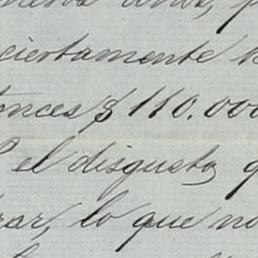 ciertamente
tonces $ 110.000
el disgusto, q
rar, lo que no